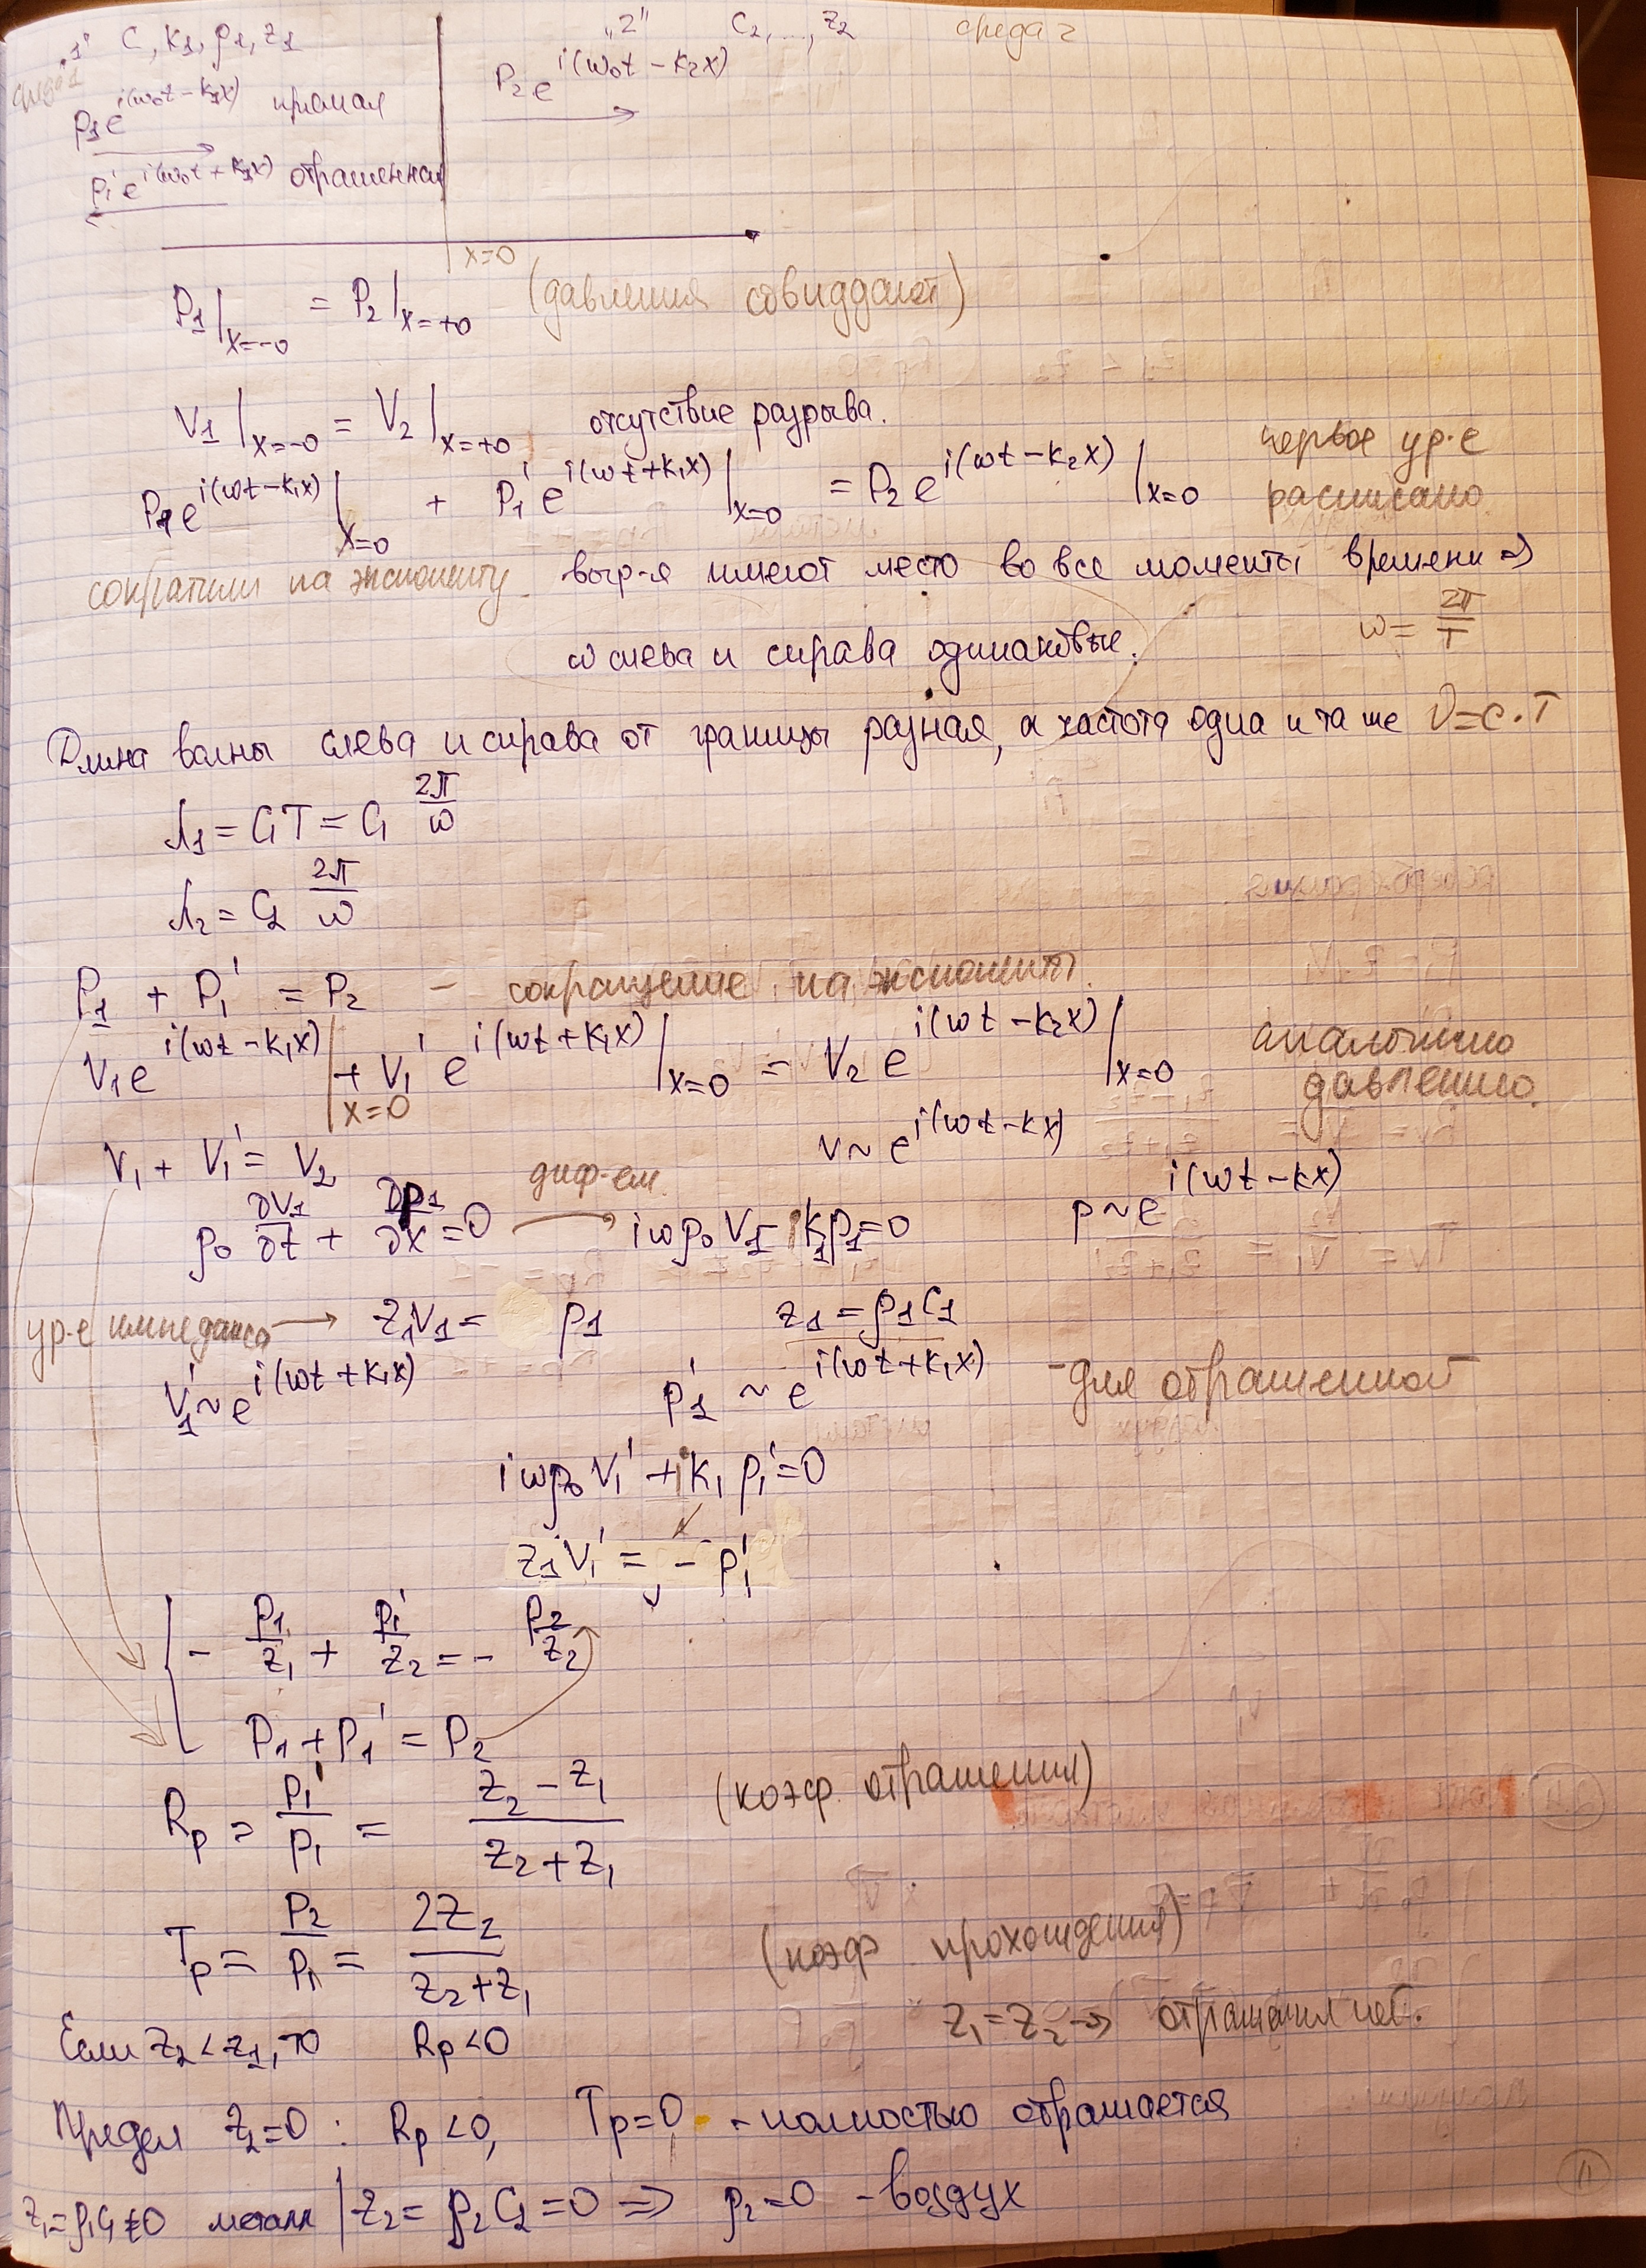 „1" C, k₁, ρ₁, z₁ „2" C₂, ..., z₂ среда 2
среда 1
p₁e^{i(ω₀t - k₁x)} прямая P₂e^{i(ω₀t - k₂x)}
p₁'e^{i(ω₀t + k₁x)} отраженная
x=0
P₁|_{x=-0} = P₂|_{x=+0} (давления совпадают)
V₁|_{x=-0} = V₂|_{x=+0} отсутствие разрыва.
P₁e^{i(ωt-k₁x)}|_{x=0} + P₁'e^{i(ωt+k₁x)}|_{x=0} = P₂e^{i(ωt-k₂x)}|_{x=0} первое ур-е расписано.
сократили на экспоненту. выр-я имеют место во все моменты времени ⇒
ω = 2π/T
ω слева и справа одинаковые.
Длина волны слева и справа от границы разная, а частота одна и та же ν=c·T
λ₁ = C₁T = C₁ 2π/ω
λ₂ = C₂ 2π/ω
P₁ + P₁' = P₂ - сокращение на экспоненты.
V₁e^{i(ωt-k₁x)}|_{x=0} + V₁'e^{i(ωt+k₁x)}|_{x=0} = V₂e^{i(ωt-k₂x)}|_{x=0} аналогично давлению.
V₁ + V₁' = V₂ v~e^{i(ωt-kx)}
ρ₀ ∂V₁/∂t + ∂p₁/∂x = 0 диф-ем. → iωρ₀V₁ - ik₁p₁=0 p~e^{i(ωt-kx)}
ур-е импеданса → z₁V₁ = p₁ z₁=ρ₁C₁
V₁'~e^{i(ωt+k₁x)} p₁' ~ e^{i(ωt+k₁x)} - для отраженной
iωρ₀V₁' + ik₁p₁'=0
z₁V₁' = - p₁'
- p₁/z₁ + p₁'/z₂ = - p₂/z₂
P₁+P₁' = P₂
R_p = p₁'/p₁ = (z₂ - z₁)/(z₂ + z₁) (коэф. отражения)
T_p = P₂/P₁ = 2z₂/(z₂+z₁) (коэф прохождения)
z₁=z₂ → отражения нет.
Если z₂<z₁, то R_p<0
Предел z₂=0 : R_p<0, T_p=0 - полностью отражается
z₁=ρ₁C₁≠0 металл | z₂ = ρ₂C₂=0 ⇒ ρ₂=0 - воздух
11